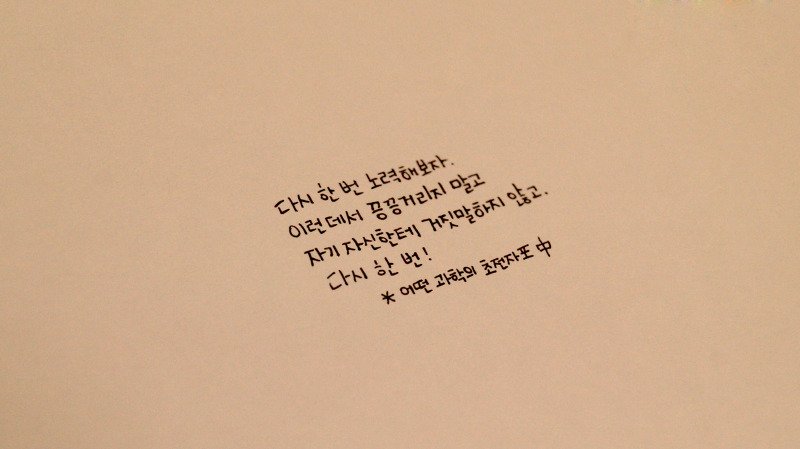 다시 한 번 노력해보자.
이런데서 끙끙거리지 말고
자기 자신한테 거짓말하지 않고.
다시 한 번!
* 어떤 과학의 초전자포 中